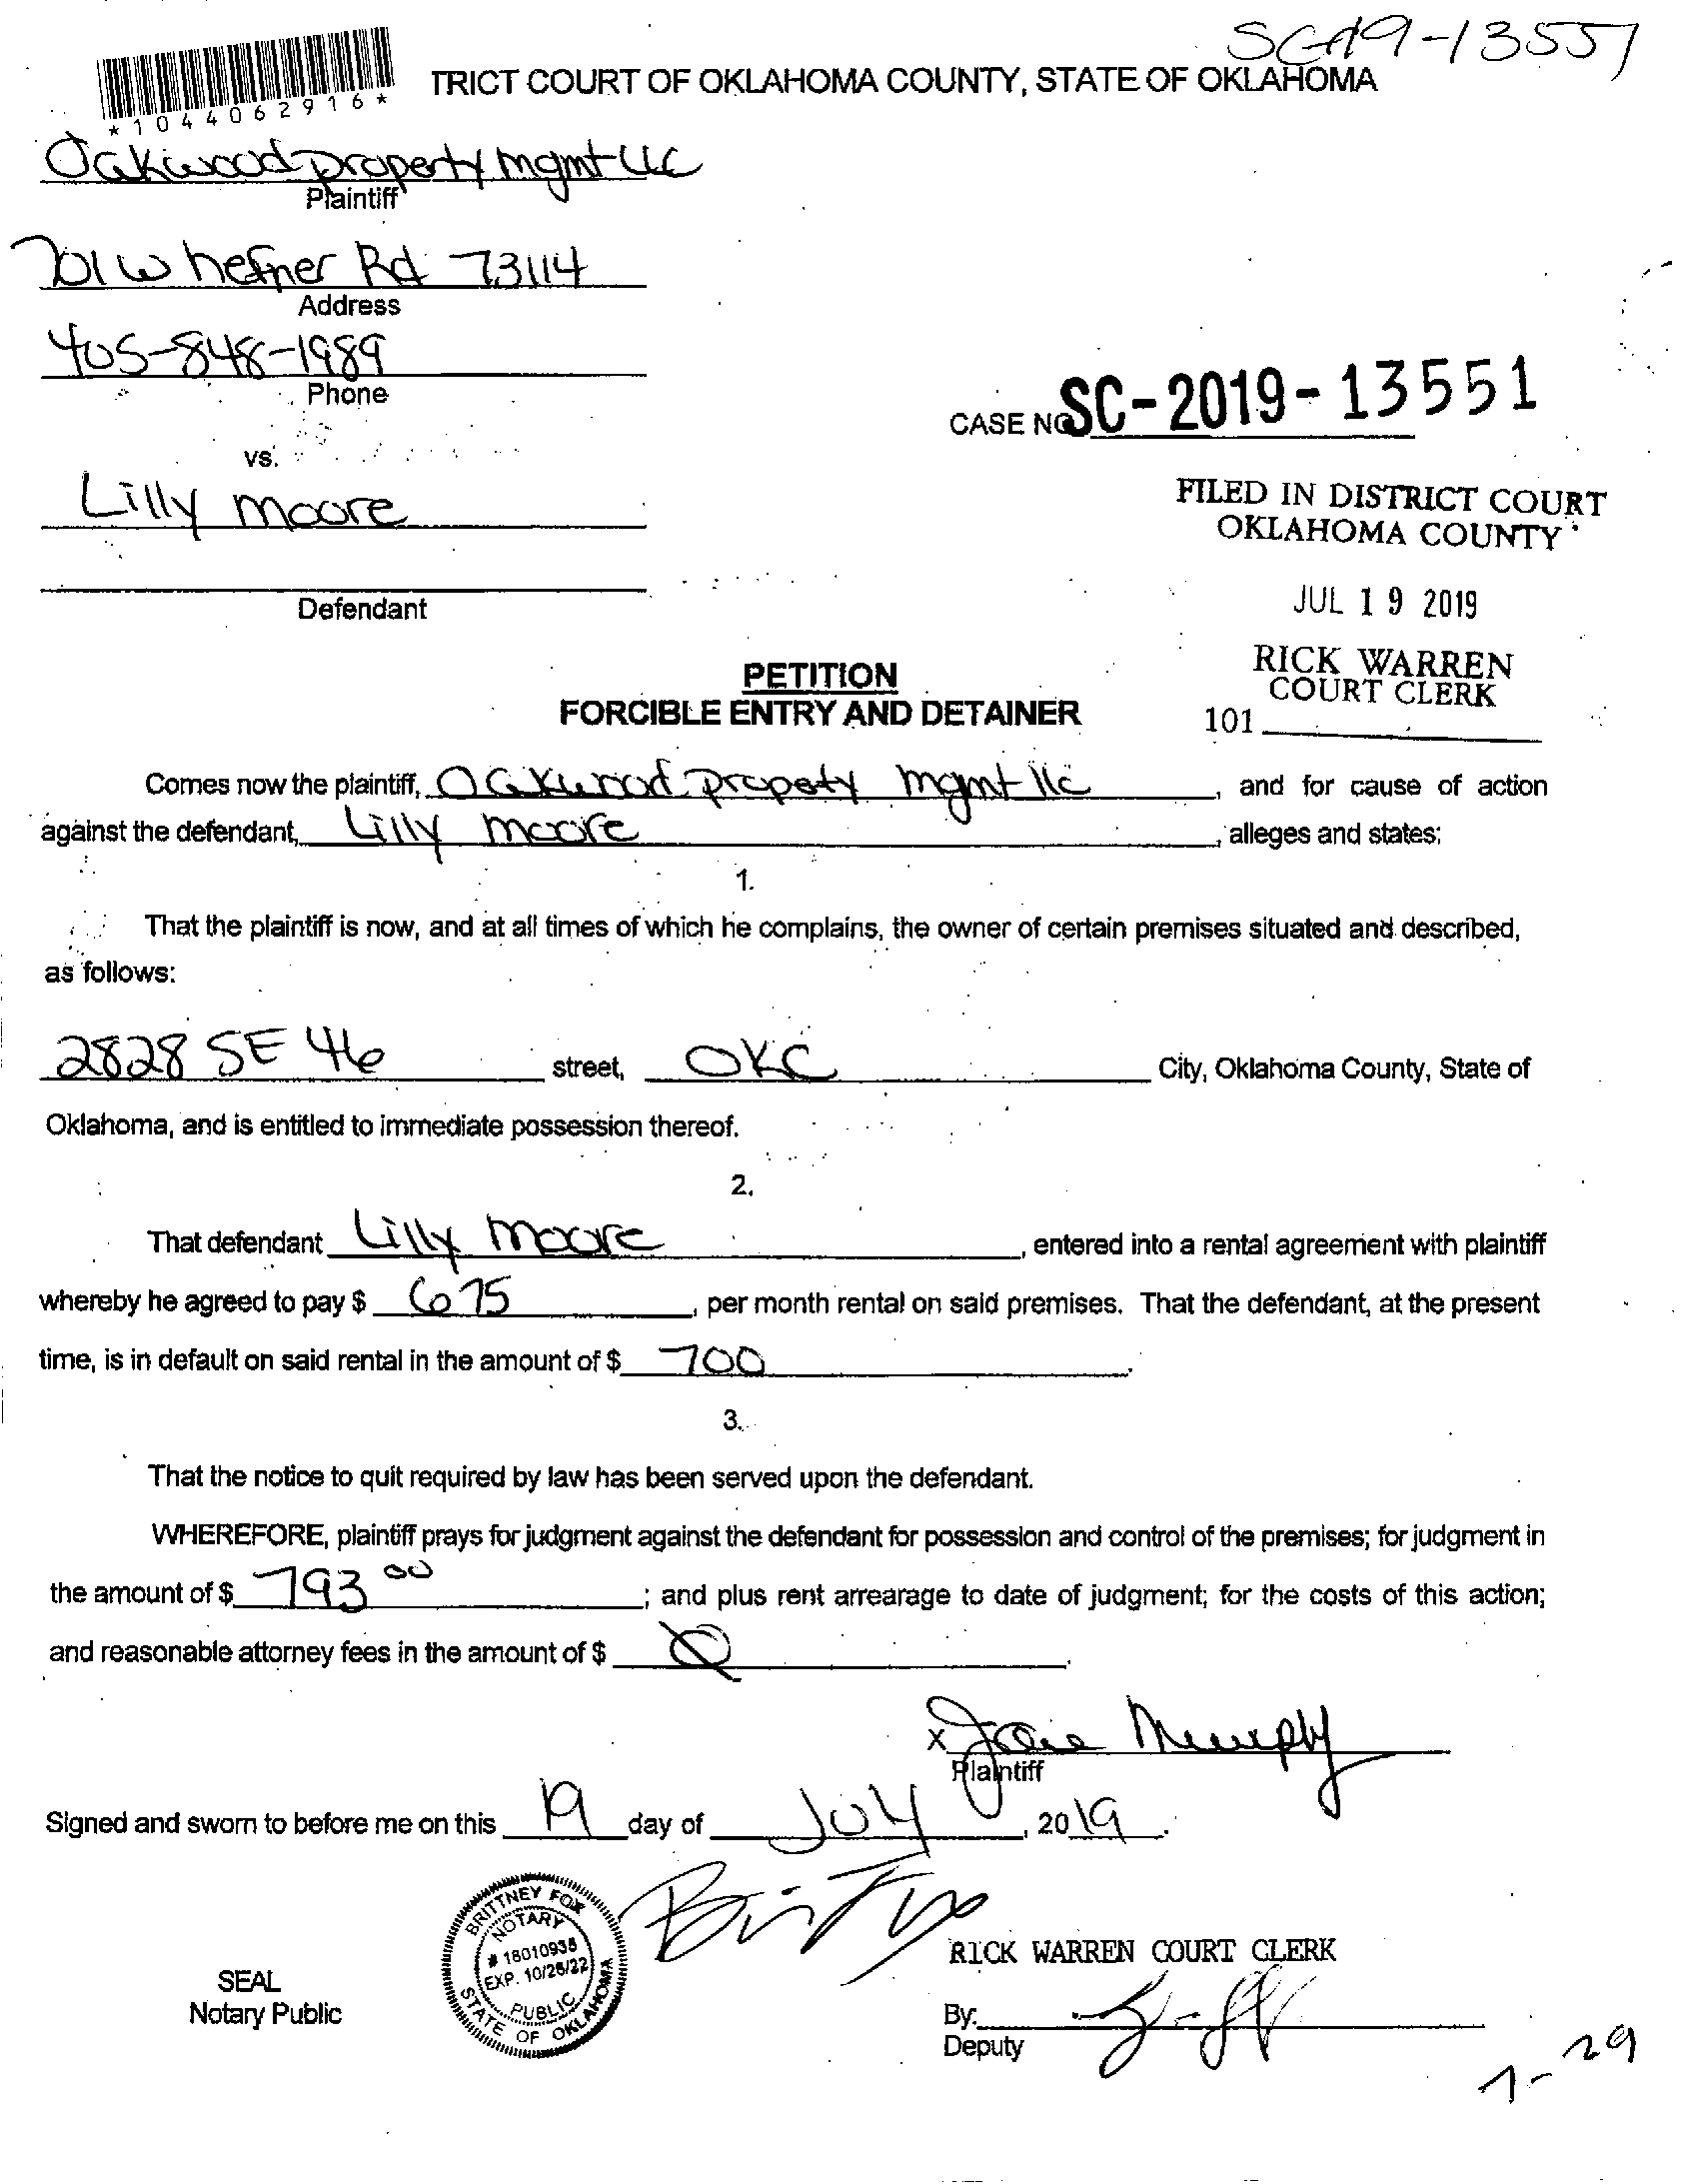 SC-19-13551
TRICT COURT OF OKLAHOMA COUNTY, STATE OF OKLAHOMA
*1044062916*
Oakwood property mgmt LLC
Plaintiff
701 W hefner Rd 73114
Address
405-848-1989
Phone
CASE NO SC-2019-13551
vs.
Lilly Moore
FILED IN DISTRICT COURT
OKLAHOMA COUNTY
Defendant
JUL 19 2019
RICK WARREN
COURT CLERK
101
PETITION
FORCIBLE ENTRY AND DETAINER
Comes now the plaintiff, Oakwood propety mgmt llc, and for cause of action
against the defendant, Lilly Moore, alleges and states;
1.
That the plaintiff is now, and at all times of which he complains, the owner of certain premises situated and described,
as follows:
2828 SE 46 street, OKC City, Oklahoma County, State of
Oklahoma, and is entitled to immediate possession thereof.
2.
That defendant Lilly Moore, entered into a rental agreement with plaintiff
whereby he agreed to pay $ 675, per month rental on said premises. That the defendant, at the present
time, is in default on said rental in the amount of $ 700.
3.
That the notice to quit required by law has been served upon the defendant.
WHEREFORE, plaintiff prays for judgment against the defendant for possession and control of the premises; for judgment in
the amount of $ 793 00; and plus rent arrearage to date of judgment; for the costs of this action;
and reasonable attorney fees in the amount of $ 0.
x Murphy
Plaintiff
Signed and sworn to before me on this 19 day of July, 2019.
BRITTNEY FOX
NOTARY
# 18010938
EXP. 10/26/22
PUBLIC
STATE OF OKLAHOMA
SEAL
Notary Public
RICK WARREN COURT CLERK
By:
Deputy
7-29